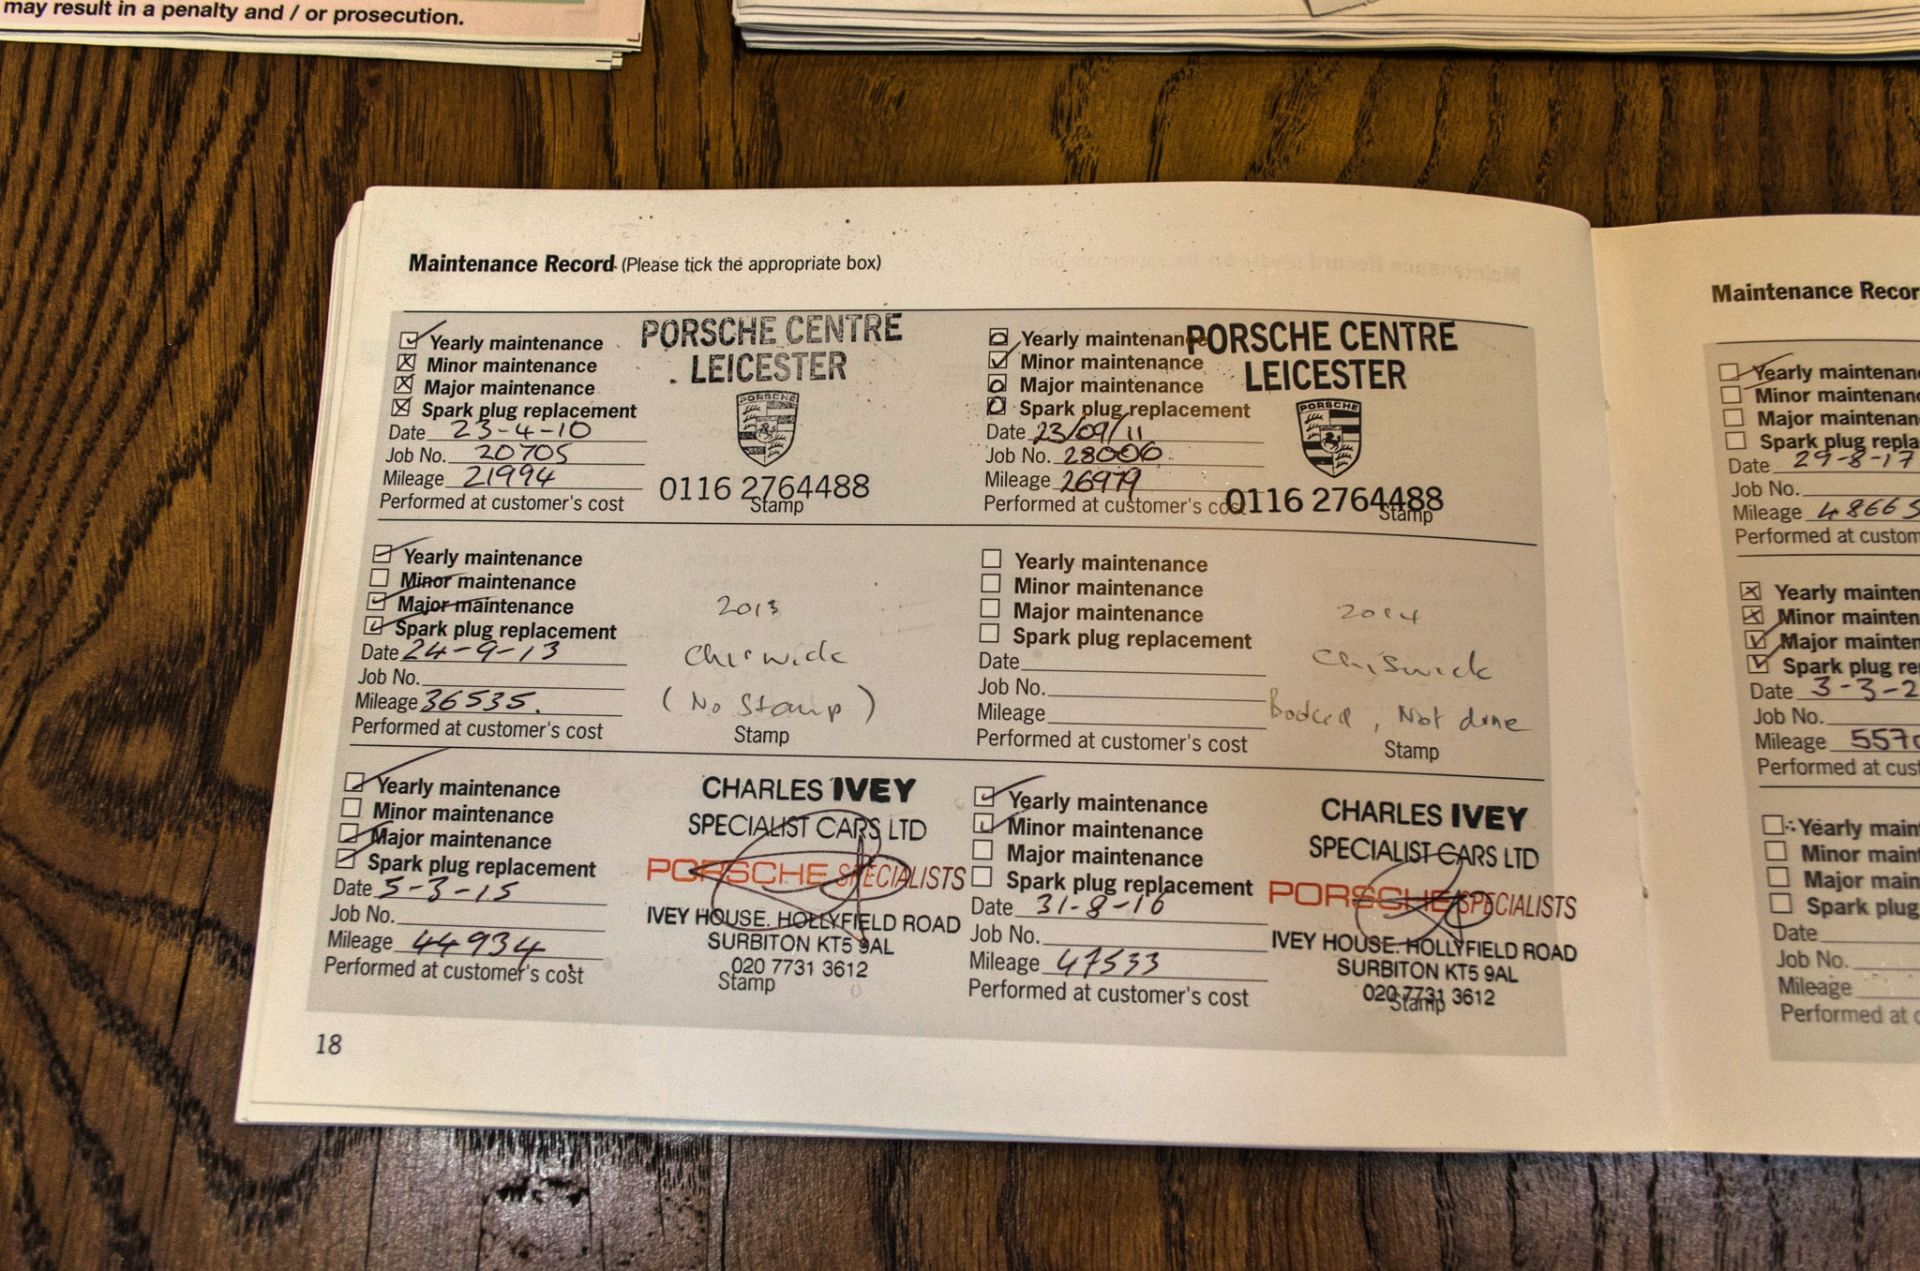 may result in a penalty and / or prosecution.
Maintenance Record (Please tick the appropriate box)
Yearly maintenance
Minor maintenance
Major maintenance
Spark plug replacement
Date 23-4-10
Job No. 20705
Mileage 21994
Performed at customer's cost
PORSCHE CENTRE
LEICESTER
PORSCHE
0116 2764488
Stamp
Yearly maintenance
Minor maintenance
Major maintenance
Spark plug replacement
Date 23/09/11
Job No. 28006
Mileage 26979
Performed at customer's cost
PORSCHE CENTRE
LEICESTER
PORSCHE
0116 2764488
Stamp
Yearly maintenance
Minor maintenance
Major maintenance
Spark plug replacement
Date 24-9-13
Job No.
Mileage 36535.
Performed at customer's cost
2013
Chiswick
(No Stamp)
Stamp
Yearly maintenance
Minor maintenance
Major maintenance
Spark plug replacement
Date
Job No.
Mileage
Performed at customer's cost
2014
Chiswick
Booked, Not done
Stamp
Yearly maintenance
Minor maintenance
Major maintenance
Spark plug replacement
Date 5-3-15
Job No.
Mileage 44934
Performed at customer's cost
CHARLES IVEY
SPECIALIST CARS LTD
PORSCHE SPECIALISTS
IVEY HOUSE. HOLLYFIELD ROAD
SURBITON KT5 9AL
020 7731 3612
Stamp
Yearly maintenance
Minor maintenance
Major maintenance
Spark plug replacement
Date 31-8-16
Job No.
Mileage 47533
Performed at customer's cost
CHARLES IVEY
SPECIALIST CARS LTD
PORSCHE SPECIALISTS
IVEY HOUSE. HOLLYFIELD ROAD
SURBITON KT5 9AL
020 7731 3612
Stamp
18
Maintenance Recor
Yearly maintenan
Minor maintenan
Major maintenan
Spark plug repla
Date 29-8-17
Job No.
Mileage 48665
Performed at custom
Yearly mainten
Minor mainten
Major mainten
Spark plug re
Date 3-3-2
Job No.
Mileage 5570
Performed at cust
Yearly maint
Minor maint
Major main
Spark plug
Date
Job No.
Mileage
Performed at c